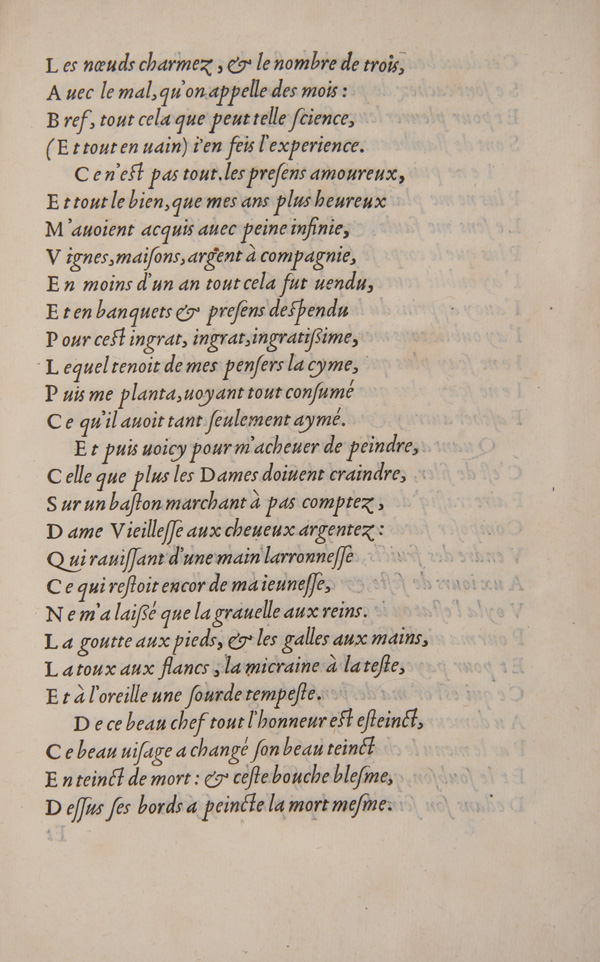 Les nœuds charmez, & le nombre de trois,
Auec le mal, qu'on appelle des mois :
Bref, tout cela que peut telle ſcience,
(Et tout en uain) i'en feis l'experience.
Ce n'eſt pas tout. les preſens amoureux,
Et tout le bien, que mes ans plus heureux
M'auoient acquis auec peine infinie,
Vignes, maiſons, argent à compagnie,
En moins d'un an tout cela fut uendu,
Et en banquets & preſens deſpendu
Pour ceſt ingrat, ingrat, ingratiſsime,
Lequel tenoit de mes penſers la cyme,
Puis me planta, uoyant tout conſumé
Ce qu'il auoit tant ſeulement aymé.
Et puis uoicy pour m'acheuer de peindre,
Celle que plus les Dames doiuent craindre,
Sur un baſton marchant à pas comptez,
Dame Vieilleſſe aux cheueux argentez :
Qui rauiſſant d'une main larronneſſe
Ce qui reſtoit encor de ma ieuneſſe,
Ne m'a laiſsé que la grauelle aux reins.
La goutte aux pieds, & les galles aux mains,
La toux aux flancs, la micraine à la teſte,
Et à l'oreille une ſourde tempeſte.
De ce beau chef tout l'honneur eſt eſteinct,
Ce beau uiſage a changé ſon beau teinct
En teinct de mort : & ceſte bouche bleſme,
Deſſus ſes bords a peincte la mort meſme.